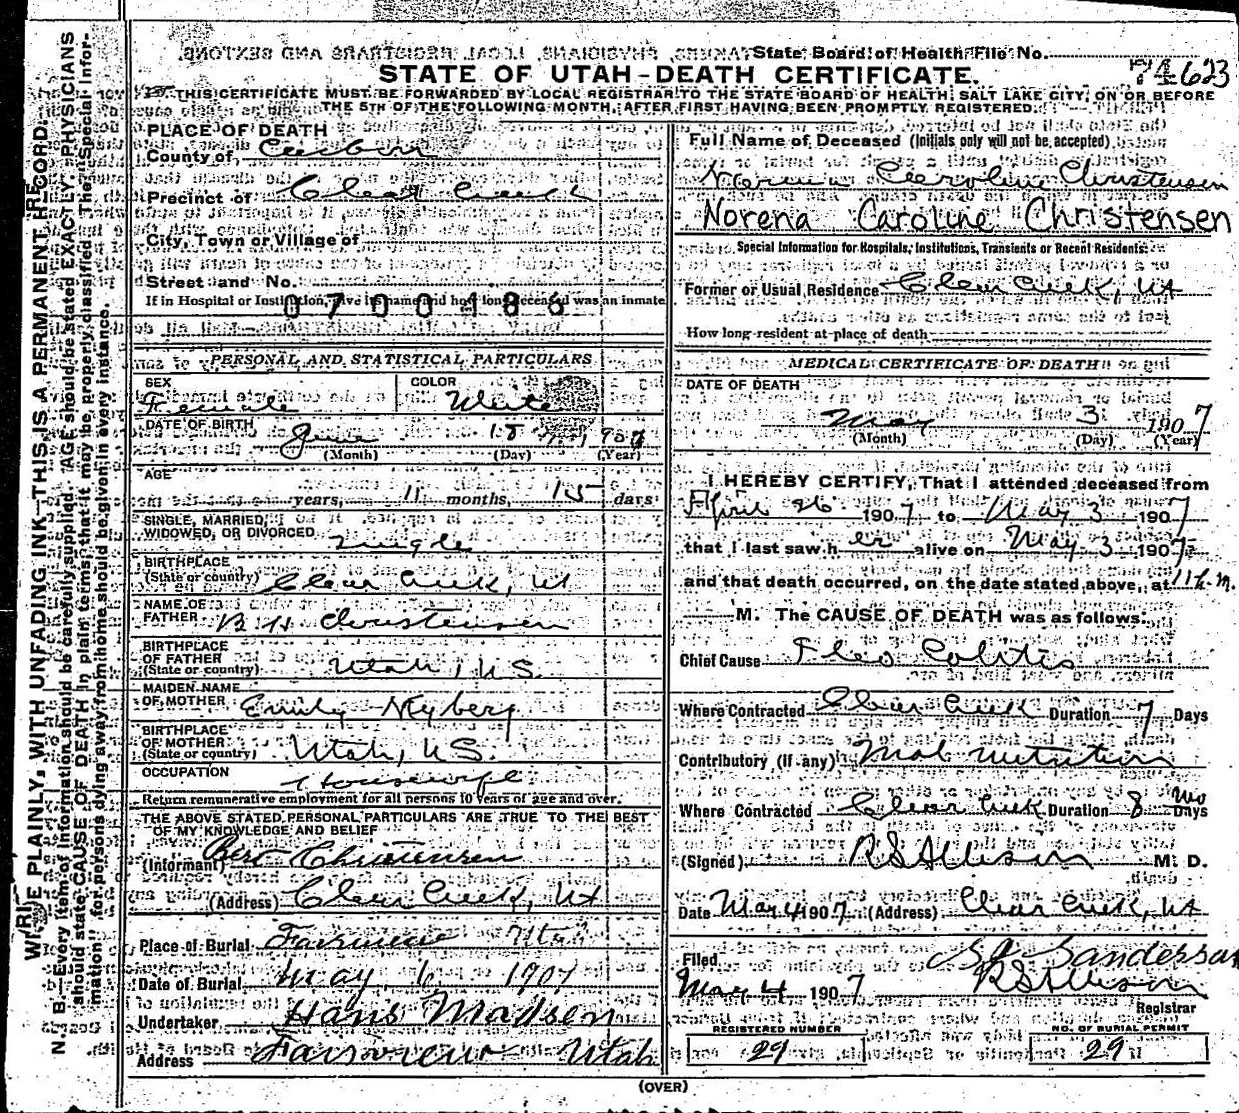 State Board of Health File No. 74623
STATE OF UTAH - DEATH CERTIFICATE.
THIS CERTIFICATE MUST BE FORWARDED BY LOCAL REGISTRAR TO THE STATE BOARD OF HEALTH, SALT LAKE CITY, ON OR BEFORE
THE 5TH OF THE FOLLOWING MONTH, AFTER FIRST HAVING BEEN PROMPTLY REGISTERED.
WRITE PLAINLY, WITH UNFADING INK—THIS IS A PERMANENT RECORD
N. B.—Every item of information should be carefully supplied. AGE should be stated EXACTLY. PHYSICIANS
should state CAUSE OF DEATH in plain terms, that it may be properly classified. The "Special Infor-
mation" for persons dying away from home should be given in every instance.
PLACE OF DEATH
County of Carbon
Precinct of Clear Creek
City, Town or Village of
Street and No.
If in Hospital or Institution, give its name and how long deceased was an inmate
0700186
PERSONAL AND STATISTICAL PARTICULARS
SEX Female
COLOR White
DATE OF BIRTH June 18 190
(Month) (Day) (Year)
AGE
years, 11 months, 15 days
SINGLE, MARRIED,
WIDOWED, OR DIVORCED Single
BIRTHPLACE
(State or country) Clear Creek, Ut
NAME OF
FATHER B H Christensen
BIRTHPLACE
OF FATHER
(State or country) Utah, U S.
MAIDEN NAME
OF MOTHER Emily Nyberg
BIRTHPLACE
OF MOTHER
(State or country) Utah, U S.
OCCUPATION Housewife
Return remunerative employment for all persons 10 years of age and over.
THE ABOVE STATED PERSONAL PARTICULARS ARE TRUE TO THE BEST
OF MY KNOWLEDGE AND BELIEF
(Informant) Bert Christensen
(Address) Clear Creek, Ut
Place of Burial Fairview Utah
Date of Burial May 6 1907
Undertaker Hans Madsen
Address Fairview Utah
Full Name of Deceased (Initials only will not be accepted)
Norena Caroline Christensen
Norena Caroline Christensen
Special Information for Hospitals, Institutions, Transients or Recent Residents:
Former or Usual Residence Clear Creek, Ut
How long resident at place of death
MEDICAL CERTIFICATE OF DEATH
DATE OF DEATH
May 3 1907
(Month) (Day) (Year)
I HEREBY CERTIFY, That I attended deceased from
April 26 1907 to May 3 1907
that I last saw her alive on May 3 1907
and that death occurred, on the date stated above, at 11
M. The CAUSE OF DEATH was as follows:
Chief Cause Ileo Colitis
Where Contracted Clear Creek Duration 7 Days
Contributory (if any) Mal nutrition
Where Contracted Clear Creek Duration 8 Mo Days
(Signed) R S Allison M. D.
Date May 4 1907 (Address) Clear Creek, Ut
Filed Sanderson
May 4 1907 R S Allison
Registrar
REGISTERED NUMBER
29
NO. OF BURIAL PERMIT
29
(OVER)